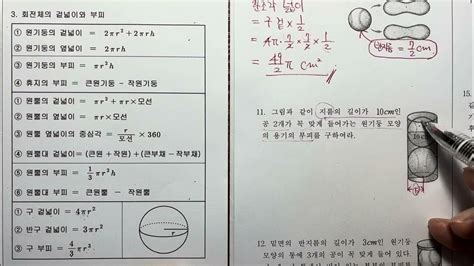 3. 회전체의 겉넓이와 부피
① 원기둥의 겉넓이 = 2πr² + 2πrh
② 원기둥의 옆넓이 = 2πrh
③ 원기둥의 부피 = πr²h
④ 휴지의 부피 = 큰원기둥 - 작원기둥
① 원뿔의 겉넓이 = πr² + πr×모선
② 원뿔의 옆넓이 = πr×모선
③ 원뿔 옆넓이의 중심각 = r/모선 ×360
④ 원뿔대의 겉넓이 = (큰원 + 작원) + (큰부채 - 작부채)
⑤ 원뿔의 부피 = 1/3 πr²h
⑥ 원뿔대의 부피 = 큰원뿔 - 작원뿔
① 구 겉넓이 = 4πr²
② 반구 겉넓이 = 3πr²
③ 구 부피 = 4/3 πr³
넓이
= 구 겉 × 1/2
= 4π · 7/2 × 7/2 × 1/2
= 49/2 π cm²
반지름 = 7/2 cm
11. 그림과 같이 지름의 길이가 10cm인
공 2개가 꼭 맞게 들어가는 원기둥 모양
의 용기의 부피를 구하여라.
12. 밑면의 반지름의 길이가 3cm인 원기둥
모양의 통에 3개의 공이 꼭 맞게
15.